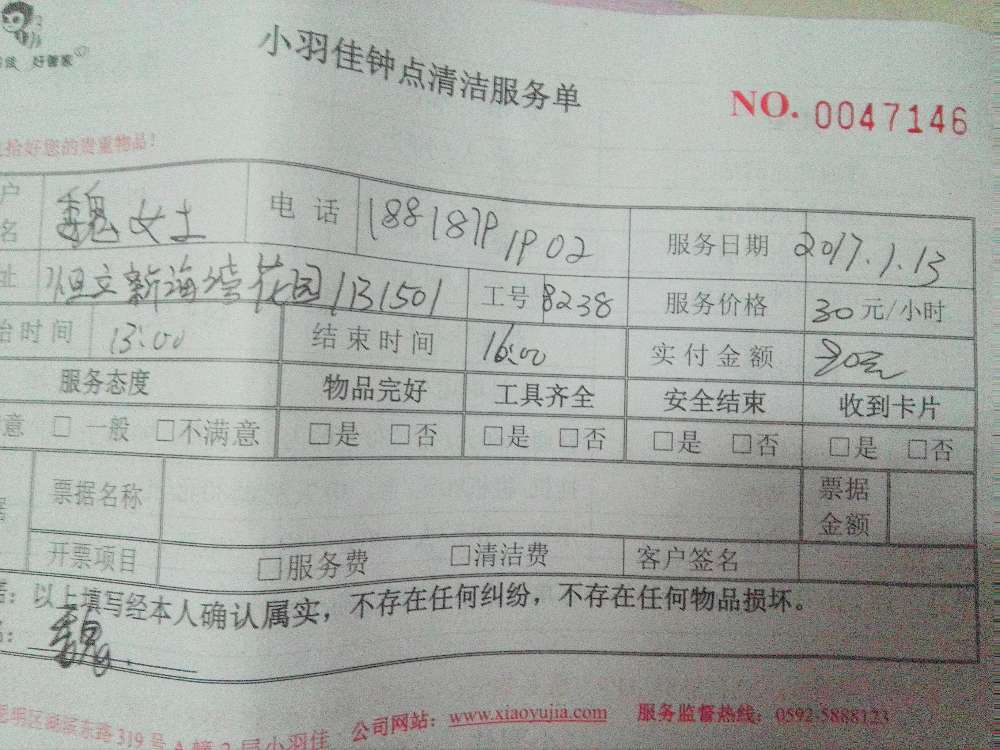 好管家
小羽佳钟点清洁服务单
NO. 0047146
拾好您的贵重物品！
户 名 魏女士 电话 服务日期 2017.1.13
址 恒立新海湾花园 1131501 工号 8238 服务价格 30元/小时
始时间 13:00 结束时间 16:00 实付金额
服务态度 物品完好 工具齐全 安全结束 收到卡片
意 □一般 □不满意 □是 □否 □是 □否 □是 □否 □是 □否
票据名称 票据金额
开票项目 □服务费 □清洁费 客户签名
：以上填写经本人确认属实，不存在任何纠纷，不存在任何物品损坏。
魏
思明区湖滨东路319号A幢2层小羽佳 公司网站：www.xiaoyujia.com 服务监督热线：0592-5888123